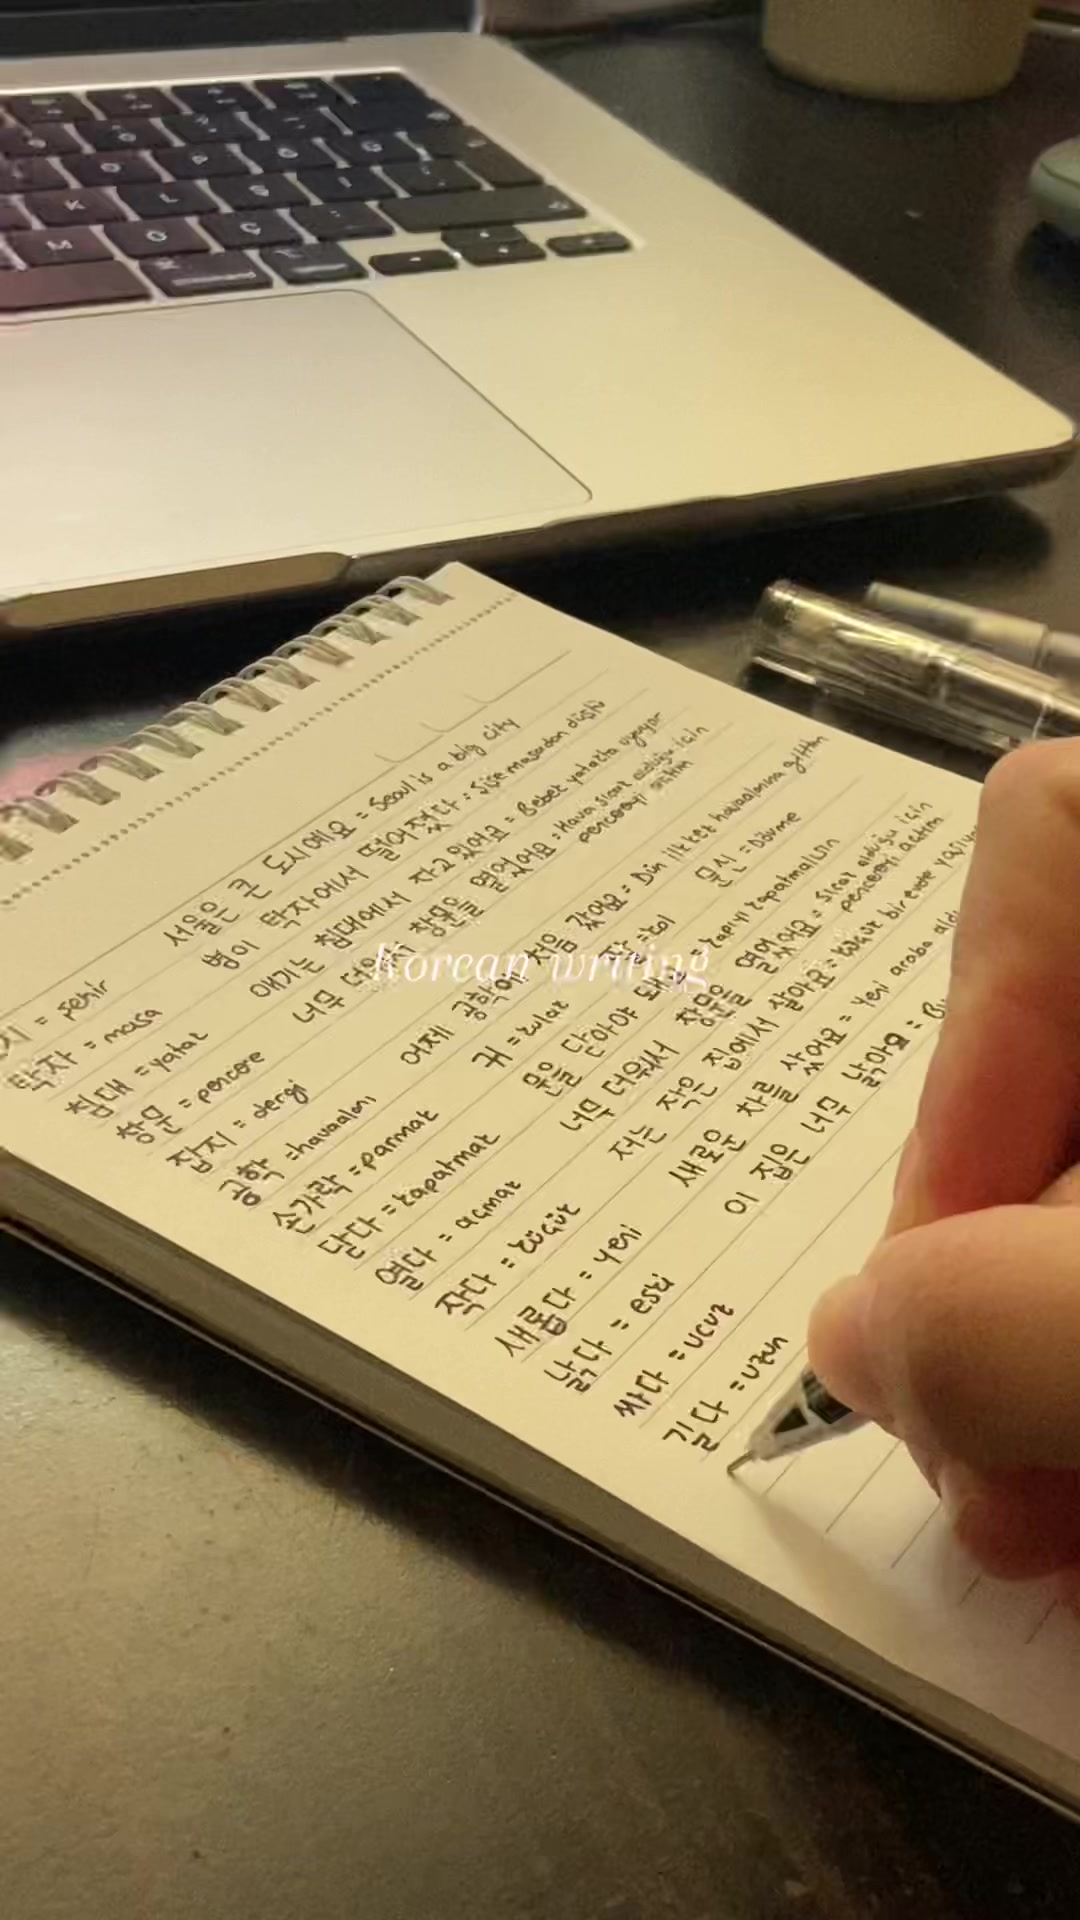 K L Ş İ
M Ö Ç
서울은 큰 도시예요 = Seoul is a big city
병이 탁자에서 떨어졌다 : Şişe masadan düştü
시 = şehir
애기는 침대에서 자고 있어요 = Bebek yatakta uyuyor
탁자 = masa
너무 더워서 창문을 열었어요 = Hava sıcak olduğu için
pencereyi açtım
침대 = yatak
창문 = pencere
잡지 = dergi
어제 처음 갔어요 = Dün ilk kez havaalanına gittim
공학 = havaalanı
귀 = kulak
= kol
문신 = Dövme
손가락 = parmak
닫다 = kapatmak
문을 닫아야 돼 = kapıyı kapatmalısın
열다 = açmak
너무 더워서 창문을 열었어요 = Sıcak olduğu için
pencereyi açtım
작다 = küçük
저는 작은 집에서 살아요 = küçük bir evde yaşıyo
새롭다 = yeni
새로운 차를 샀어요 = Yeni araba aldı
낡다 = eski
이 집은 너무 낡아요 = Bu
싸다 = ucuz
길다 = uzun
Korean writing